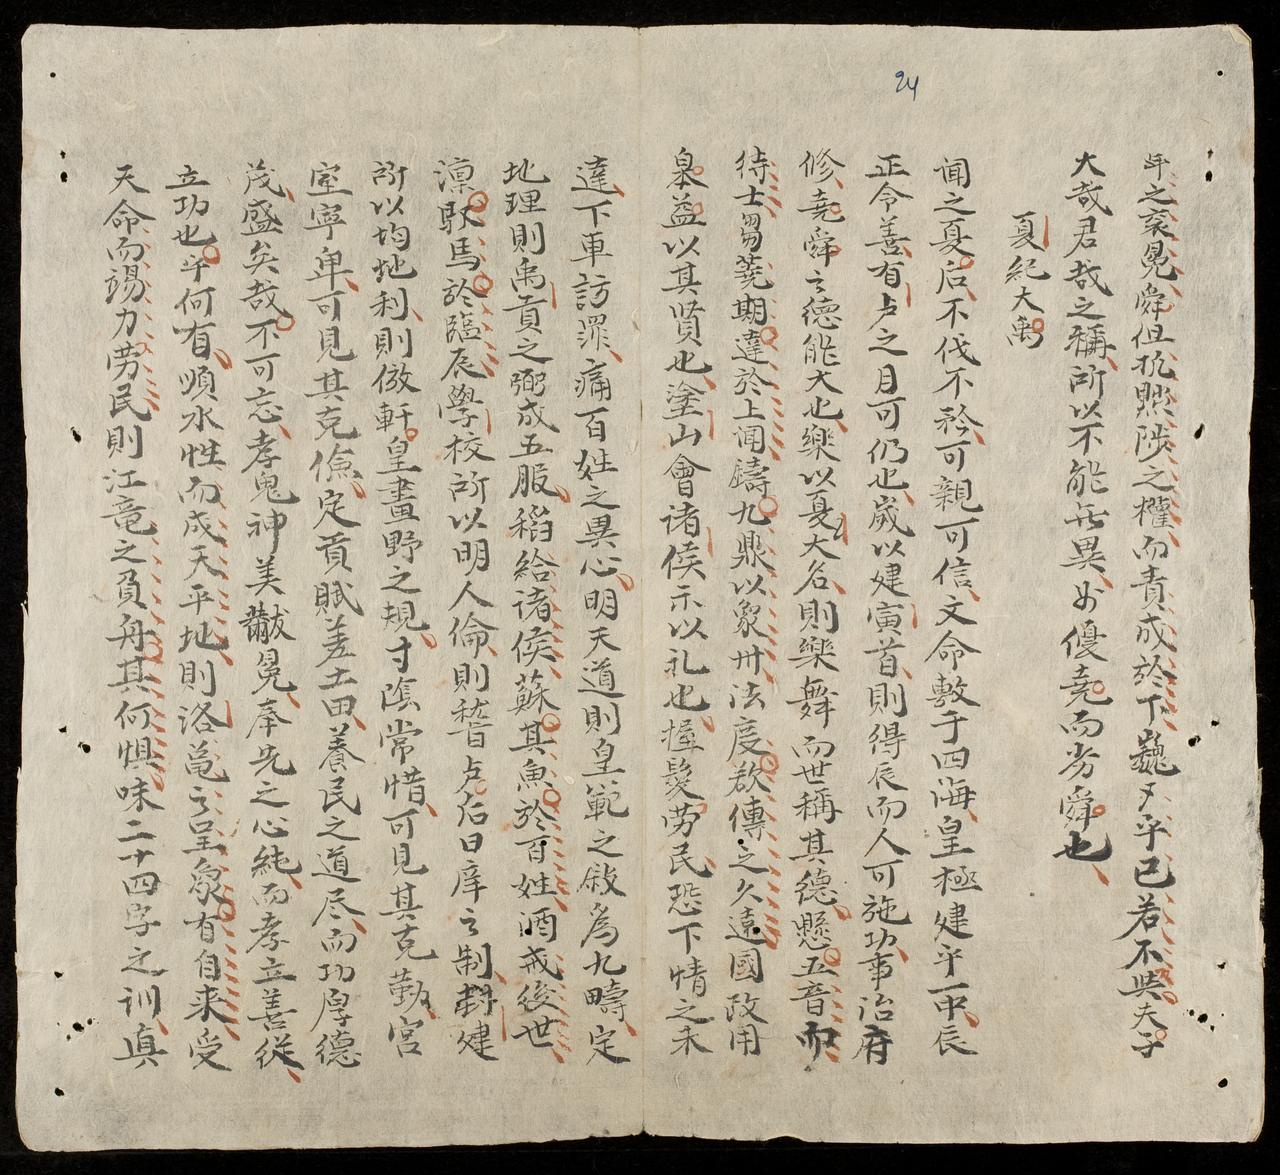 24
之袞冕舜但執煕陟之權而責成於下巍〻乎已若不與夫子
大哉君哉之稱所以不能無異如優堯而劣舜也
夏紀大禹
聞之夏后不伐不矜可親可信文命敷于四海皇極建乎一中辰
正令善有卢之月可仍也歲以建寅首則得辰而人可施功事治府
修堯舜之德能大也樂以夏大名則樂舞而世稱其德懸五音而
待士芻蕘期達於上聞鑄九鼎以象卅法度欲傳之久遠國政用
皋益以其賢也塗山會诸侯示以礼也握髮劳民恐下情之未
達下車訪罪痛百姓之異心明天道則皇範之敘為九疇定
地理則禹貢之弼成五服稻給诸侯蘇其魚於百姓酒戒後世
凛馭馬於臨辰學校所以明人倫則稽卢右曰庠之制建
所以均地利則倣軒皇畫野之規寸陰常惜可見其克勤宮
室寧卑可見其克儉定貢賦差土田養民之道尽而功厚德
茂盛矣哉不可忘孝鬼神美黻冕奉先之心純而孝立善從
立功也乎何有順水性而成天平地則洛黽之呈象有自来受
天命而竭力劳民則江竜之負舟其何惧味二十四字之训真